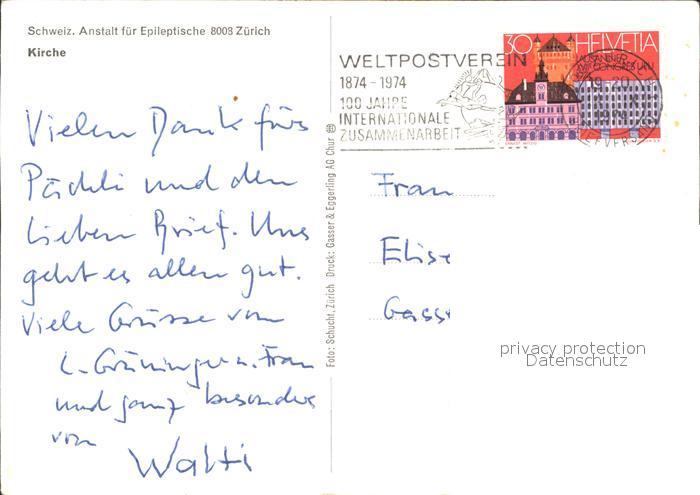 Schweiz. Anstalt für Epileptische 8008 Zürich
Kirche
Vielen Dank fürs
Päckli und den
lieben Brief. Uns
geht es allen gut.
Viele Grüsse von
L. Grüninger u. Frau
und ganz besonders
von
Walti
Foto: Schucht, Zürich Druck: Gasser & Eggerling AG Chur
WELTPOSTVEREIN
1874-1974
100 JAHRE
INTERNATIONALE
ZUSAMMENARBEIT
30 HELVETIA
LAUSANNE
Frau
Elise
Gass
privacy protection
Datenschutz